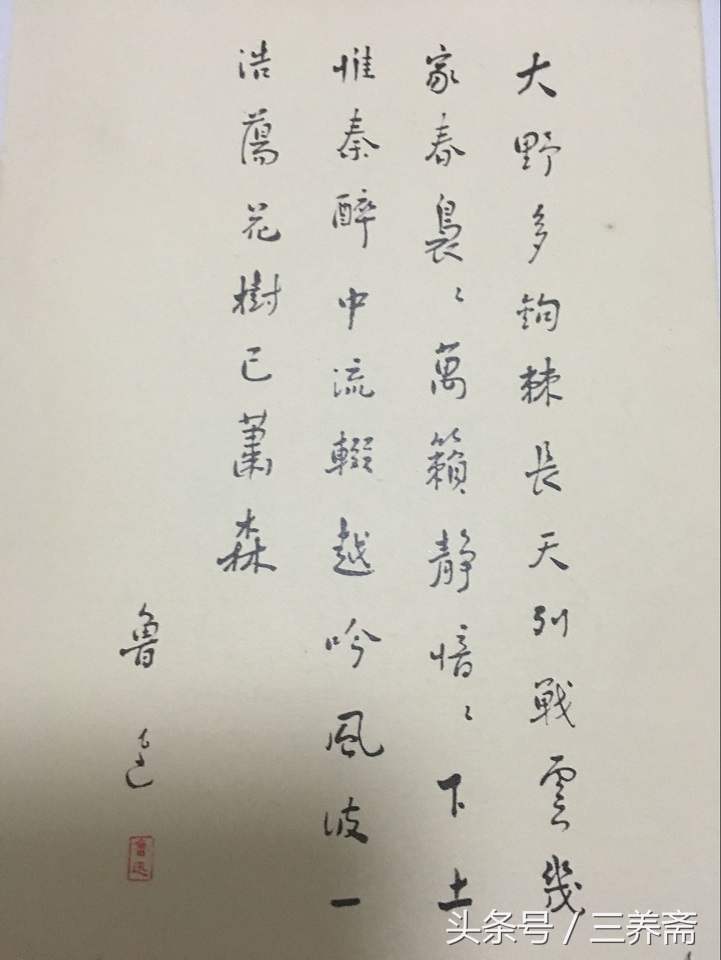 大野多鉤棘長天列戰雲幾
家春裊〻萬籟靜愔〻下土
惟秦醉中流輟越吟風波一
浩蕩花樹已蕭森
魯迅
魯迅
头条号 / 三养斋